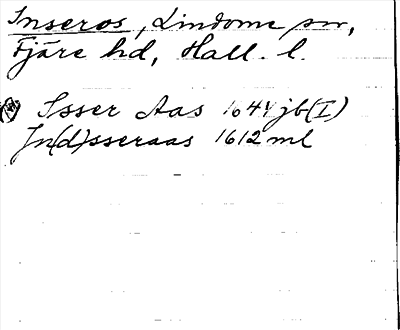 Inseros, Lindome sn,
Fjäre hd, Hall. l.
Isser Aas 1644 jb(I)
Jn(d)sseraas 1612 ml